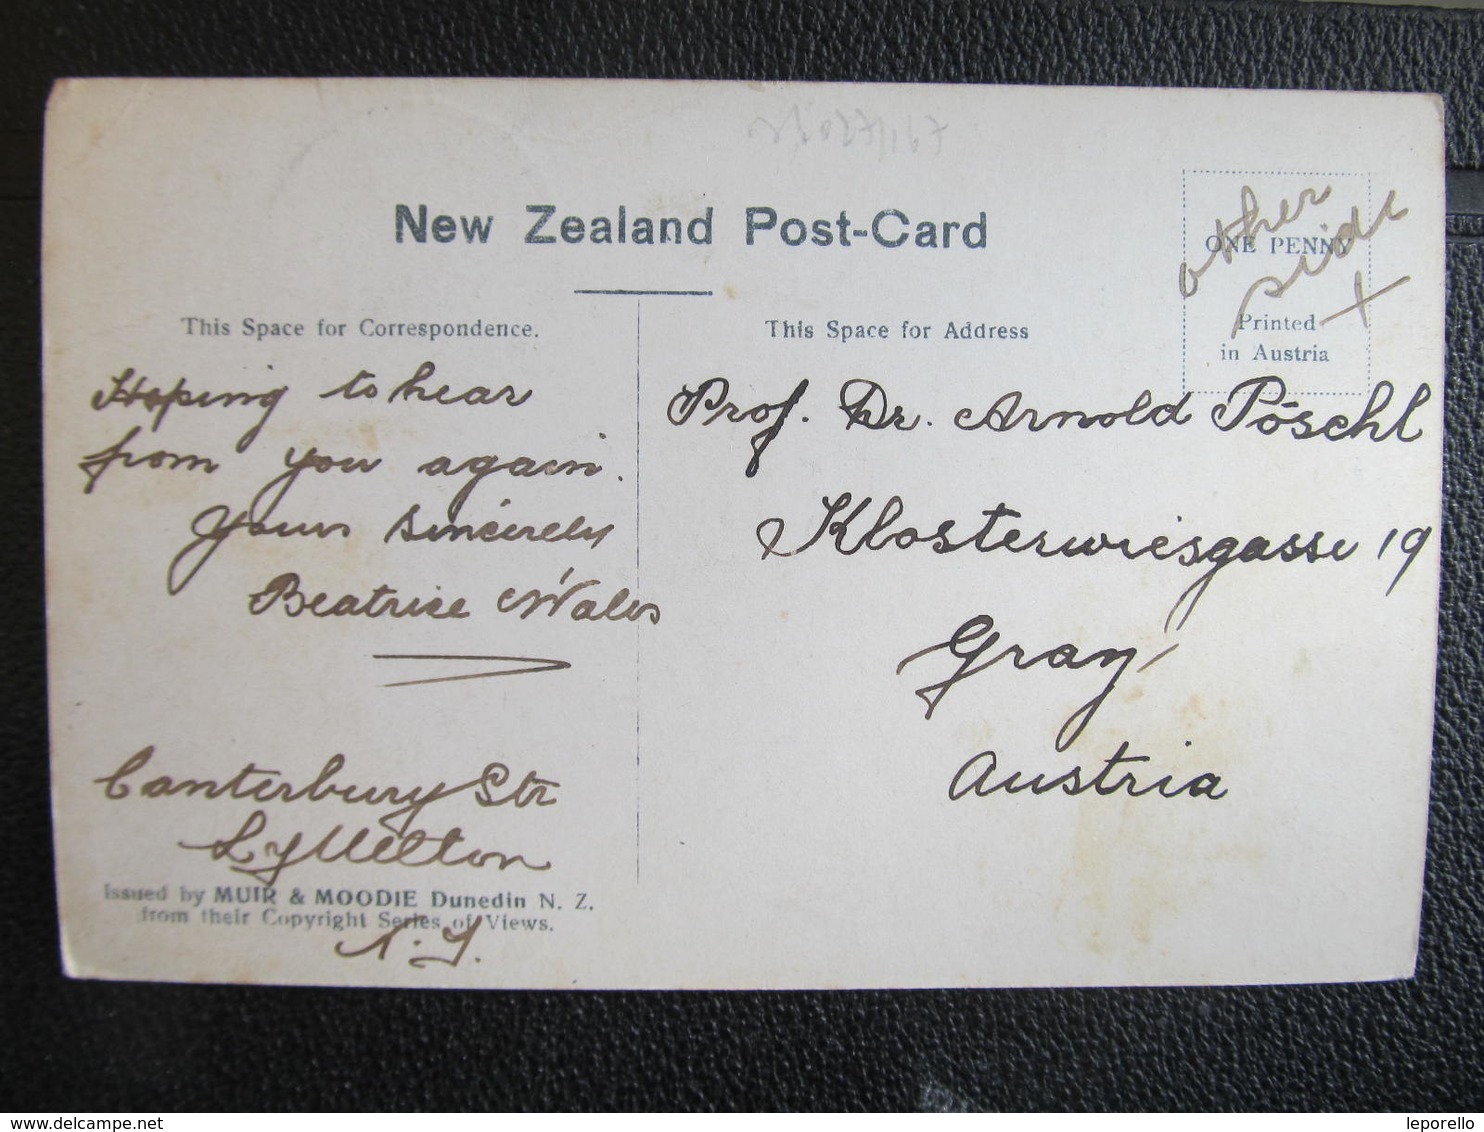 New Zealand Post-Card
other
side
X
ONE PENNY
Printed
in Austria
This Space for Correspondence.
Hoping to hear
from you again.
Yours sincerely
Beatrice Wales
Canterbury Str
Lyttelton
N.Z.
Issued by MUIR & MOODIE Dunedin N. Z.
from their Copyright Series of Views.
This Space for Address
Prof. Dr. Arnold Pöschl
Klosterwiesgasse 19
Graz
Austria
delcampe.net
leporello